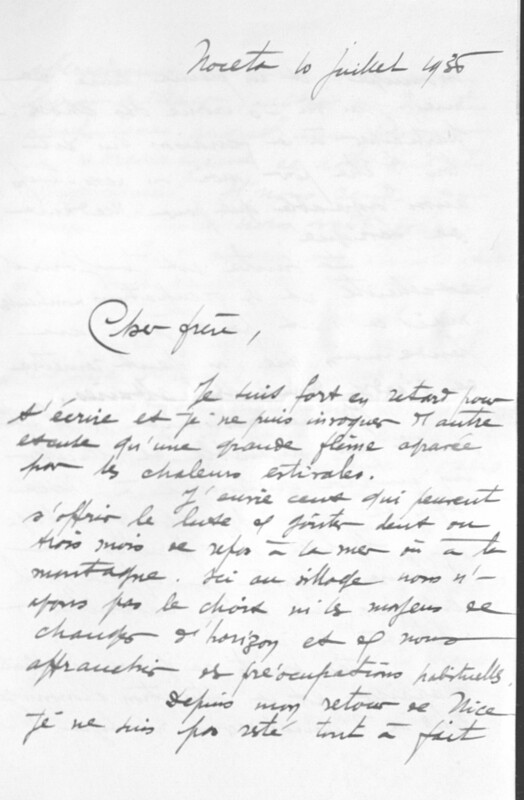 Noceta 10 juillet 1936
Cher frère,
Je suis fort en retard pour
t'écrire et je ne puis invoquer d'autre
excuse qu'une grande flême
par les chaleurs estivales.
J'envie ceux qui peuvent
s'offrir le luxe de goûter deux ou
trois mois de repos à la mer ou à la
montagne. Ici au village nous n'-
avons pas le choix ni les moyens de
changer d'horizon et de nous
affranchir des préocupations habituelles.
Depuis mon retour de Nice
je ne suis pas resté tout à fait